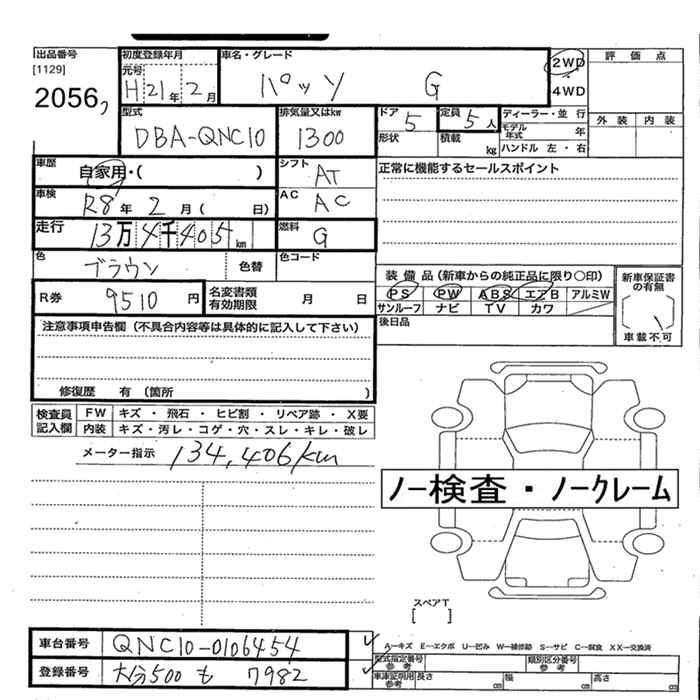 出品番号
[1129]
2056
初度登録年月
元号
H 21 年 2 月
車名・グレード
パッソ G
2WD
4WD
評価点
外装 内装
型式
DBA-QNC10
排気量又はkw
1300
ドア
5
形状
定員
5人
積載
kg
ディーラー・並行
モデル年式 年
ハンドル 左・右
車歴
自家用・( )
シフト
AT
正常に機能するセールスポイント
車検
R8年 2月( 日)
AC
AC
走行
13万4千405km
燃料
G
色
ブラウン
色替
色コード
装備品(新車からの純正品に限り〇印)
PS PW ABS エアB アルミW
サンルーフ ナビ TV カワ
新車保証書の有無
車載不可
R券
9510 円
名変書類有効期限
月 日
後日品
注意事項申告欄(不具合内容等は具体的に記入して下さい)
修復歴 有(箇所 )
検査員記入欄
FW キズ・飛石・ヒビ割・リペア跡・X要
内装 キズ・汚レ・コゲ・穴・スレ・キレ・破レ
メーター指示 134,406km
ノー検査・ノークレーム
スペアT
[ ]
車台番号
QNC10-0106454
登録番号
大分500 も 7982
A―キズ E―エクボ U―凹み W―補修跡 S―サビ C―腐食 XX―交換済
型式指定番号 参考
類別区分番号 参考
車庫証明用 参考
長さ cm
幅 cm
高さ cm